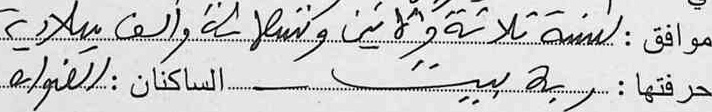 موافق : لسنة ثلاثة وثلاثين وتسعمائة وألف ميلادية
حرفتها : ربة بيت الساكنان :